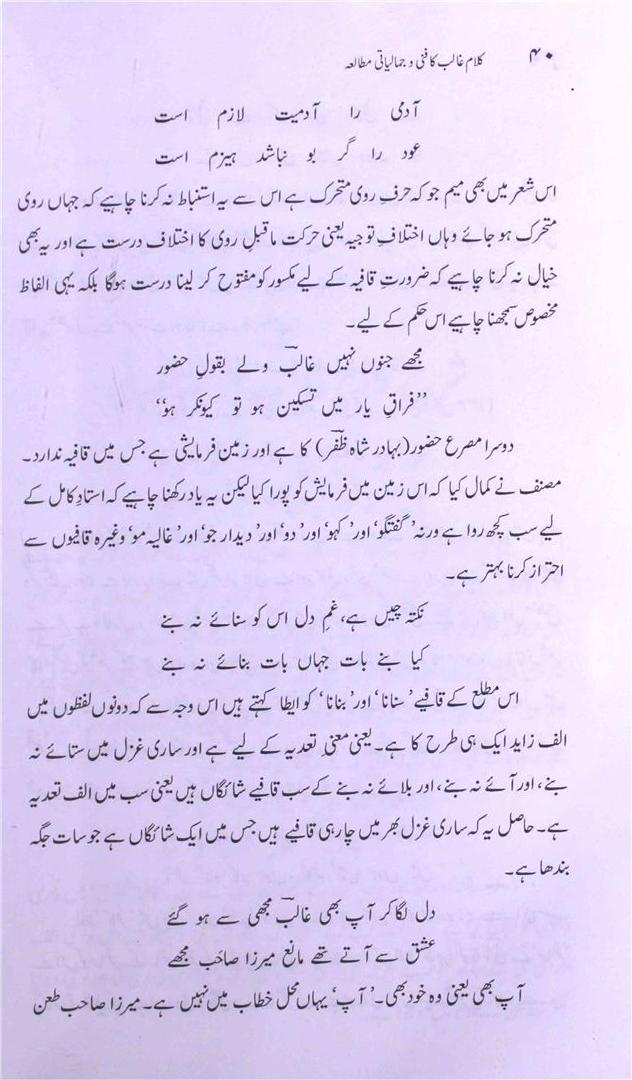 ۴۰ کلام غالب کا فنی و جمالیاتی مطالعہ
آدمی را آدمیت لازم است
عود را گر بو نباشد ہیزم است
اس شعر میں بھی میم جو کہ حرفِ روی متحرک ہے اس سے یہ استنباط نہ کرنا چاہیے کہ جہاں روی
متحرک ہو جائے وہاں اختلافِ توجیہ یعنی حرکت ماقبلِ روی کا اختلاف درست ہے اور یہ بھی
خیال نہ کرنا چاہیے کہ ضرورتِ قافیہ کے لیے مکسور کو مفتوح کر لینا درست ہوگا بلکہ یہی الفاظ
مخصوص سمجھنا چاہیے اس حکم کے لیے۔
مجھے جنوں نہیں غالبؔ ولے بقولِ حضور
”فراقِ یار میں تسکین ہو تو کیونکر ہو“
دوسرا مصرع حضور (بہادر شاہ ظفرؔ) کا ہے اور زمین فرمایشی ہے جس میں قافیہ ندارد۔
مصنف نے کمال کیا کہ اس زمین میں فرمایش کو پورا کیا لیکن یہ یاد رکھنا چاہیے کہ استادِ کامل کے
لیے سب کچھ روا ہے ورنہ ’گفتگو‘ اور ’کہو‘ اور ’دو‘ اور ’دیدار جو‘ اور ’غالیہ مو‘ وغیرہ قافیوں سے
احتراز کرنا بہتر ہے۔
نکتہ چیں ہے، غمِ دل اس کو سنائے نہ بنے
کیا بنے بات جہاں بات بنائے نہ بنے
اس مطلع کے قافیے ’سنانا‘ اور ’بنانا‘ کو ایطا کہتے ہیں اس وجہ سے کہ دونوں لفظوں میں
الف زاید ایک ہی طرح کا ہے۔ یعنی معنیِ تعدیہ کے لیے ہے اور ساری غزل میں ستائے نہ
بنے، اور آئے نہ بنے، اور بلائے نہ بنے کے سب قافیے شائگاں ہیں یعنی سب میں الف تعدیہ
ہے۔ حاصل یہ کہ ساری غزل بھر میں چار ہی قافیے ہیں جس میں ایک شائگاں ہے جو سات جگہ
بندھا ہے۔
دل لگا کر آپ بھی غالبؔ مجھی سے ہو گئے
عشق سے آتے تھے مانع میرزا صاحب مجھے
آپ بھی یعنی وہ خود بھی۔ ’آپ‘ یہاں محل خطاب میں نہیں ہے۔ میرزا صاحب طعن